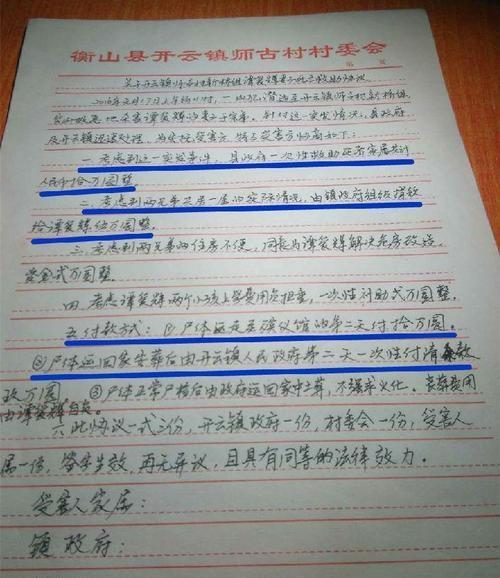 衡山县开云镇师古村村委会
第 页
关于开云镇师古村新桥组谭爱辉妻子死亡救助协议
及开云镇迅速处理,为安抚受害方,特与受害方协商如下:
一、考虑到这一突发事件,县政府一次性救助死者家属共计
人民币拾万圆整
二、考虑到两兄弟共居一屋的实际情况,由镇政府组织捐款
给谭爱辉伍万圆整。
三、考虑到两兄弟的住房不便,同长与谭爱辉解决危房改造,
资金弍万圆整.
四、考虑谭爱辉两个小孩上学费用负担重,一次性补助弍万圆整.
五付款方式:①尸体运走至殡仪馆的第二天付拾万圆.
②尸体运回家安葬后由开云镇人民政府第二天一次性付清余款
玖万圆 ③尸体正常尸检后由政府运回家中土葬,不强求火化。丧葬费用
由谭爱辉自负。
六、此协议一式三份,开云镇政府一份,村委会一份,受害人
属一份,签字生效,再无异议,且具有同等的法律效力.
受害人家属:
镇政府: